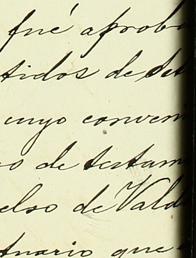 fué aprobo
tidos de set
cuyo conven
o de testam
elso de Vald
tuario que